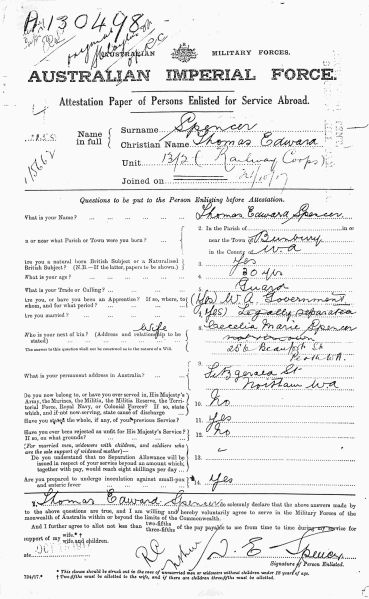 A130498
R.C
AUSTRALIAN MILITARY FORCES.
AUSTRALIAN IMPERIAL FORCE.
Attestation Paper of Persons Enlisted for Service Abroad.
Name in full
Surname Spencer
Christian Name Thomas Edward
Unit (Railway Corps)
Joined on
Questions to be put to the Person Enlisting before Attestation.
What is your Name? 1. Thomas Edward Spencer
2. In the Parish of in or
n or near what Parish or Town were you born? near the Town of Bunbury
in the County of W.A
Are you a natural born British Subject or a Naturalised British Subject? (N.B.—If the latter, papers to be shown.) 3. Yes
What is your age? 4. 30 yrs
What is your Trade or Calling? 5. Guard
Are you, or have you been an Apprentice? If so, where, to whom, and for what period? (Yes) W.A. Government
Are you married? (Yes) Legally separated
Who is your next of kin? (Address and relationship to be stated) Wife Cecelia Marie Spencer
256 Beaufort St
Perth W.A.
What is your permanent address in Australia? Fitzgerald St
Northam W.A
Do you now belong to, or have you ever served in, His Majesty's Army, the Marines, the Militia, the Militia Reserve, the Territorial Force, Royal Navy, or Colonial Forces? If so, state which, and if not now serving, state cause of discharge No
Have you stated the whole, if any, of your previous Service? 11. Yes
Have you ever been rejected as unfit for His Majesty's Service? If so, on what grounds? 12. No
(For married men, widowers with children, and soldiers who are the sole support of widowed mother)—
Do you understand that no Separation Allowance will be issued in respect of your service beyond an amount which, together with pay, would reach eight shillings per day 13. "
Are you prepared to undergo inoculation against small-pox and enteric fever 14. Yes
I, Thomas Edward Spencer do solemnly declare that the above answers made by
to the above questions are true, and I am willing and hereby voluntarily agree to serve in the Military Forces of the
Commonwealth of Australia within or beyond the limits of the Commonwealth.
And I further agree to allot not less than two-fifths three-fifths of the pay payable to me from time to time during my service for
support of my wife.* †
wife and children.
R.C
T. E. Spencer
Signature of Person Enlisted.
* This clause should be struck out in the case of unmarried men or widowers without children under 18 years of age.
† Two-fifths must be allotted to the wife, and if there are children three-fifths must be allotted.